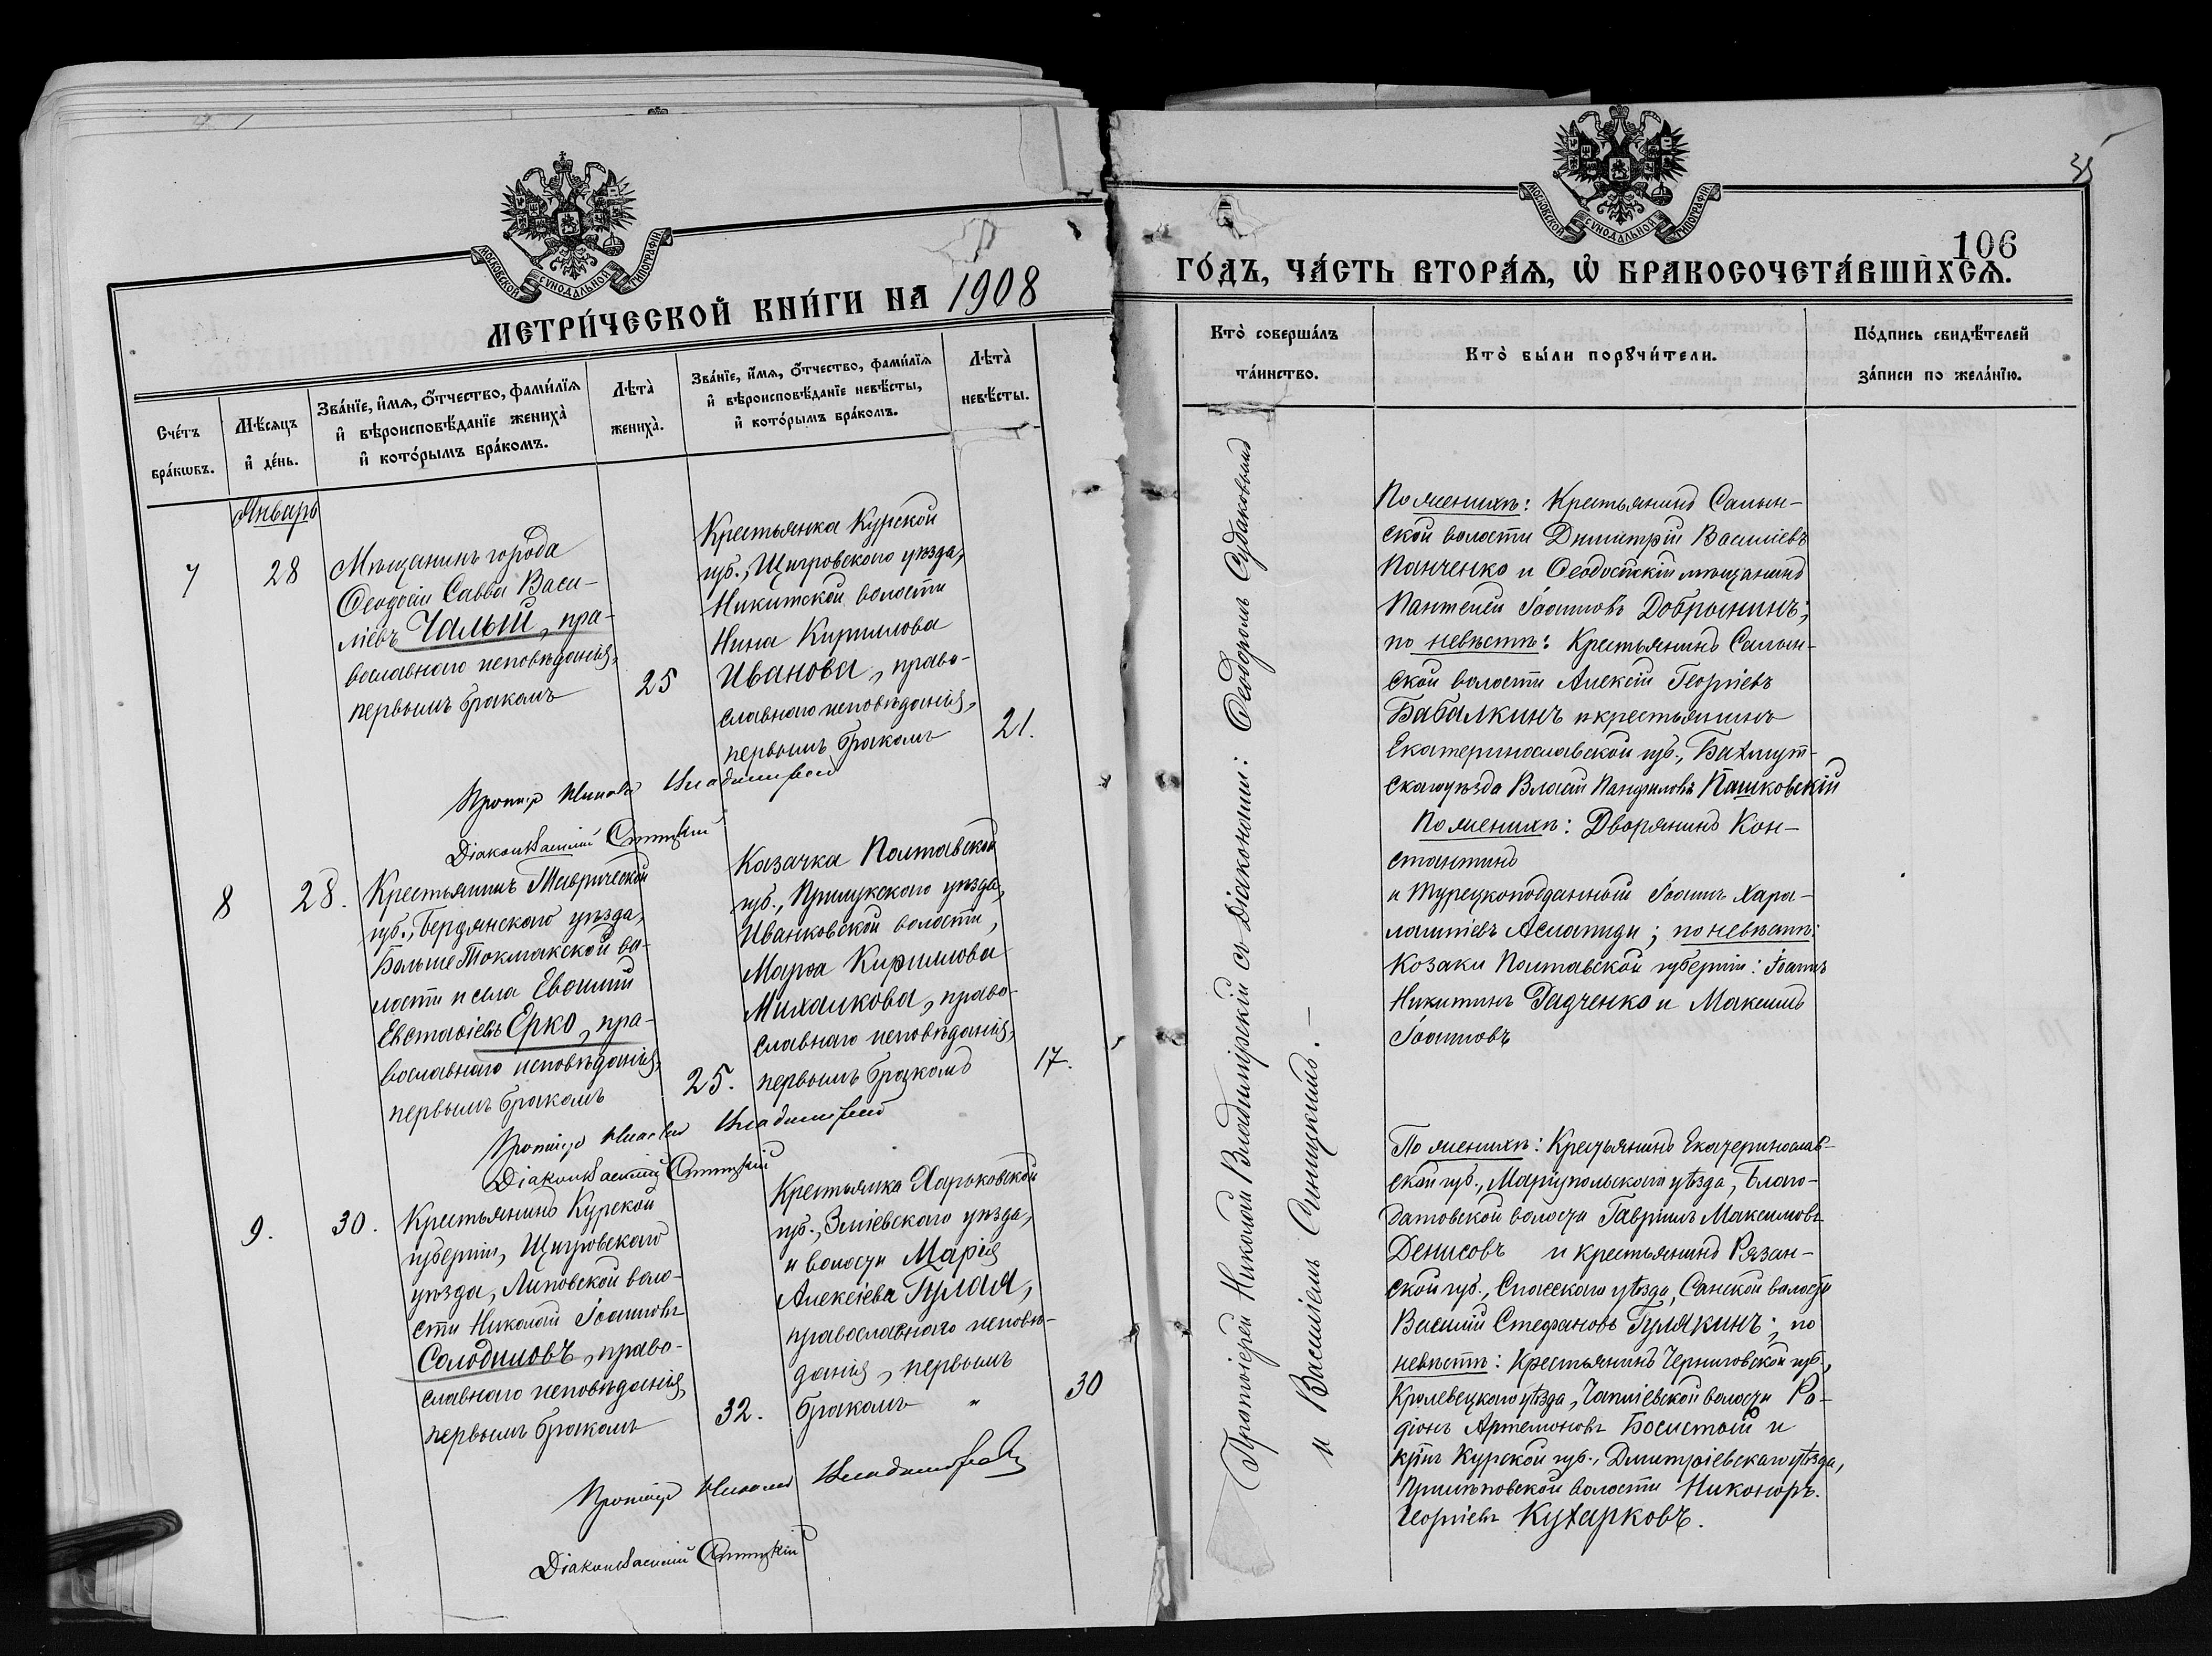 МОСКОВСКОЙ СѴНОДАЛЬНОЙ ТИПОГРАФІИ
МЕТРИ́ЧЕСКОЙ КНИ́ГИ НА 1908
Сче́тъ бра́кѡвъ.
Мѣ́сяцъ и҆ де́нь.
Зва́нїе, и҆́мѧ, ѻ҆́тчество, фами́лїѧ
и҆ вѣроисповѣ́данїе жениха̀
и҆ кото́рымъ бра́комъ.
Лѣта̀ жениха̀.
Зва́нїе, и҆́мѧ, ѻ҆́тчество, фами́лїѧ
и҆ вѣроисповѣ́данїе невѣ́сты,
и҆ кото́рымъ бра́комъ.
Лѣта̀ невѣ́сты.
Январь
7
28
Мѣщанинъ города
Ѳеодосіи Савва Васи-
ліевъ Чалый, пра-
вославнаго исповѣданія,
первымъ бракомъ
25
Крестьянка Курской
губ., Щигровскаго уѣзда,
Никитской волости
Нина Кириллова
Иванова, право-
славнаго исповѣданія,
первымъ бракомъ
21.
Протоіер Николай Владимірскій
Діаконъ Василій Синицкій
8
28.
Крестьянинъ Таврической
губ., Бердянскаго уѣзда,
Больше Токмакской во-
лости и села Евѳимій
Евстаѳіевъ Ерко, пра-
вославнаго исповѣданія,
первымъ бракомъ
25.
Казачка Полтавской
губ., Прилукскаго уѣзда,
Иванковской волости,
Марѳа Кириллова
Михалкова, право-
славнаго исповѣданія,
первымъ бракомъ
17.
Протоіер Николай Владимірскій
Діаконъ Василій Синицкій
9.
30.
Крестьянинъ Курской
губерніи, Щигровскаго
уѣзда, Липовской воло-
сти Николай Іоанновъ
Солодиловъ, право-
славнаго исповѣданія,
первымъ бракомъ
32.
Крестьянка Харьковской
губ., Зміевскаго уѣзда,
и волости Марія
Алексіева Гулая,
православнаго исповѣ-
данія, первымъ
бракомъ „
30
Протоіер Николай Владимірскій
Діаконъ Василій Синицкій
35
МОСКОВСКОЙ СѴНОДАЛЬНОЙ ТИПОГРАФІИ
106
ГО́ДЪ, ЧА́СТЬ ВТОРА́Ѧ, Ѡ҆ БРАКОСОЧЕТА́ВШИХСѦ.
Кто̀ соверша́лъ
та́инство.
Кто̀ бы́ли порꙋчи́тели.
По́дпись свидѣ́телей
за́писи по жела́нїю.
Протоіерей Николай Владимірскій съ Діаконами: Ѳеодоромъ Судаковымъ
и Василіемъ Синицкимъ. —
По женихѣ: Крестьянинъ Салын-
ской волости Димитрій Василіевъ
Панченко и Ѳеодосійскій мѣщанинъ
Пантелей Іоанновъ Добрынинъ;
по невѣстѣ: Крестьянинъ Салын-
ской волости Алексій Георгіевъ
Бабалкинъ и крестьянинъ
Екатеринославской губ., Бахмут-
скаго уѣзда Власій Панфиловъ Пашковскій
По женихѣ: Дворянинъ Кон-
стантинъ
и Турецкоподданный Іоаннъ Хара-
лампіевъ Аслатиди; по невѣстѣ:
Козаки Полтавской губерніи: Іоаннъ
Никитинъ Радченко и Максимъ
Іоанновъ
По женихѣ: Крестьянинъ Екатеринослав-
ской губ., Маріупольскаго уѣзда, Благо-
датовской волости Гавріилъ Максимовъ
Денисовъ и крестьянинъ Рязан-
ской губ., Спасскаго уѣзда, Санской волости
Василій Стефановъ Гулякинъ; по
невѣстѣ: Крестьянинъ Черниговской губ.,
Кролевецкаго уѣзда, Чаплiевской волости Ро-
діонъ Артемоновъ Босистый и
кр҃нъ Курской губ., Дмитріевскаго уѣзда,
Прилѣповской волости Никоноръ
Георгіевъ Кухарковъ.